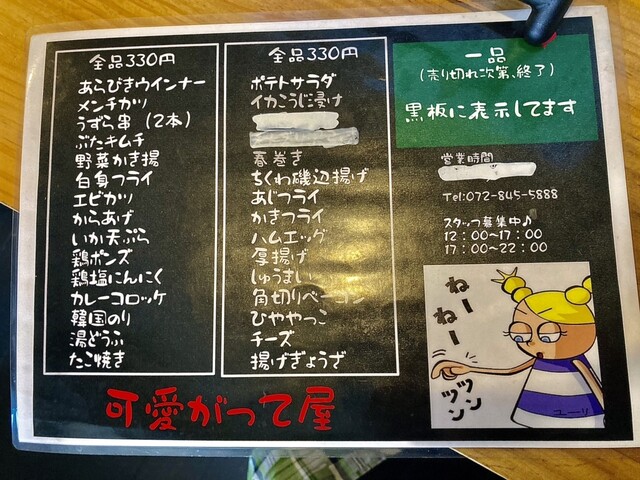 全品330円
あらびきウインナー
メンチカツ
うずら串（2本）
ぶたキムチ
野菜かき揚
白身フライ
エビカツ
からあげ
いか天ぷら
鶏ポンズ
鶏塩にんにく
カレーコロッケ
韓国のり
湯どうふ
たこ焼き
全品330円
ポテトサラダ
イカこうじ漬け
春巻き
ちくわ磯辺揚げ
あじフライ
かきフライ
ハムエッグ
厚揚げ
しゅうまい
角切りベーコン
ひややっこ
チーズ
揚げぎょうざ
一品
（売り切れ次第、終了）
黒板に表示してます
営業時間
Tel:072-845-5888
スタッフ募集中♪
12：00～17：00
17：00～22：00
ねー
ねー
ツン
ツン
ユーリ
可愛がって屋